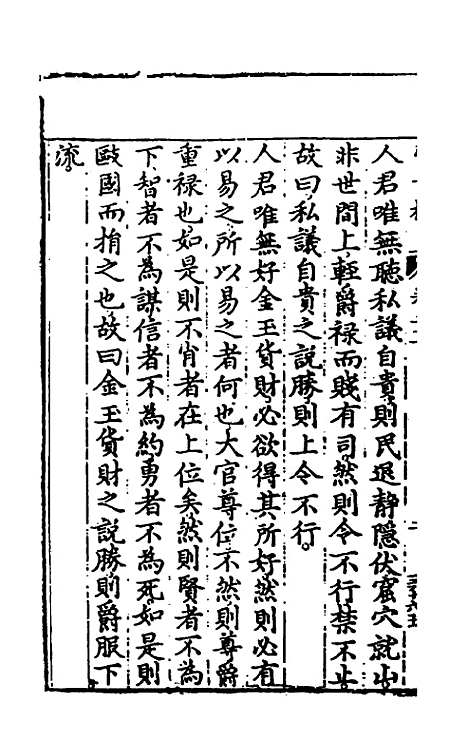 人君唯無聽私議自貴則民退静隱伏窟穴就山
非世間上輕爵禄而賤有司然則令不行禁不止
故曰私議自貴之説勝則上令不行
人君唯無好金玉貨財必欲得其所好然則必有
以易之所以易之者何也大官尊位不然則尊爵
重禄也如是則不肖者在上位矣然則賢者不為
下智者不為謀信者不為約勇者不為死如是則
敺國而捐之也故曰金玉貨財之説勝則爵服下
流